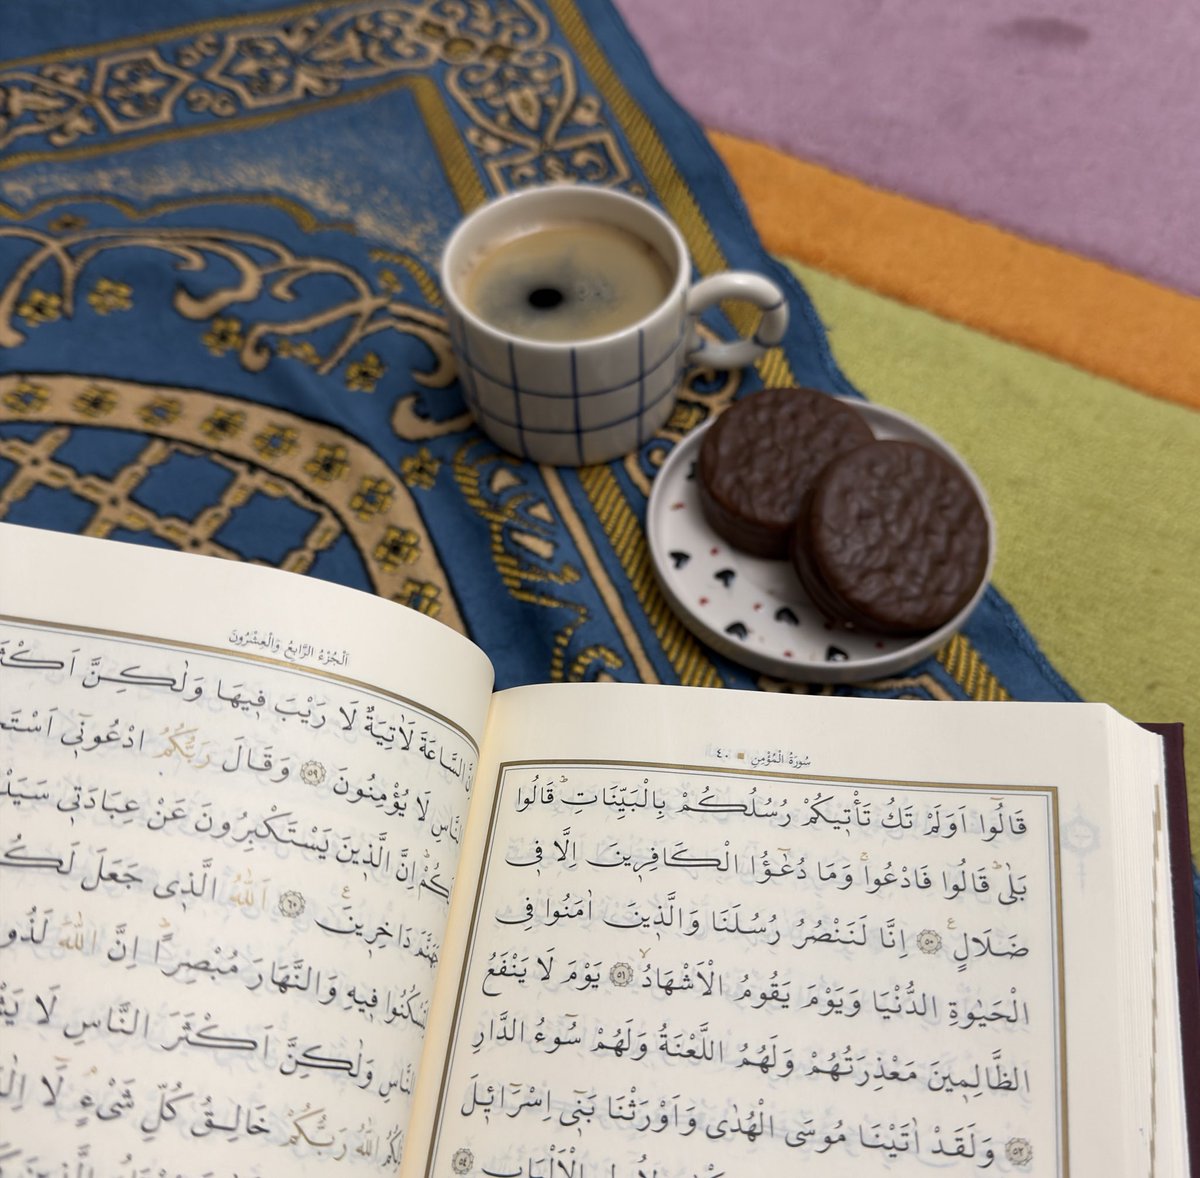 سُورَةُ الْمُؤْمِنِ ٤٠
قَالُٓوا اَوَلَمْ تَكُ تَأْت۪يكُمْ رُسُلُكُمْ بِالْبَيِّنَاتِۜ قَالُوا
بَلٰىۜ قَالُوا فَادْعُواۚ وَمَا دُعٰٓؤُا الْكَافِر۪ينَ اِلَّا ف۪ي
ضَلَالٍ۟ ﴿٥٠﴾ اِنَّا لَنَنْصُرُ رُسُلَنَا وَالَّذ۪ينَ اٰمَنُوا فِي
الْحَيٰوةِ الدُّنْيَا وَيَوْمَ يَقُومُ الْاَشْهَادُۙ ﴿٥١﴾ يَوْمَ لَا يَنْفَعُ
الظَّالِم۪ينَ مَعْذِرَتُهُمْ وَلَهُمُ اللَّعْنَةُ وَلَهُمْ سُٓوءُ الدَّارِ
﴿٥٢﴾ وَلَقَدْ اٰتَيْنَا مُوسَى الْهُدٰى وَاَوْرَثْنَا بَن۪ٓي اِسْرَٓائ۪لَ
الْاَلْبَابِ ﴿٥٤﴾
اَلْجُزْءُ الرَّابِعُ وَالْعِشْرُونَ
السَّاعَةَ لَاٰتِيَةٌ لَا رَيْبَ ف۪يهَا وَلٰكِنَّ
النَّاسِ لَا يُؤْمِنُونَ ﴿٥٩﴾ وَقَالَ رَبُّكُمُ ادْعُون۪ٓي
اِنَّ الَّذ۪ينَ يَسْتَكْبِرُونَ عَنْ عِبَادَت۪ي
جَهَنَّمَ دَاخِر۪ينَ۟ ﴿٦٠﴾ اَللّٰهُ الَّذ۪ي جَعَلَ
لِتَسْكُنُوا ف۪يهِ وَالنَّهَارَ مُبْصِرًاۜ اِنَّ اللّٰهَ لَذُو
النَّاسِ وَلٰكِنَّ اَكْثَرَ النَّاسِ لَا
اللّٰهُ رَبُّكُمْ خَالِقُ كُلِّ شَيْءٍۢ لَٓا